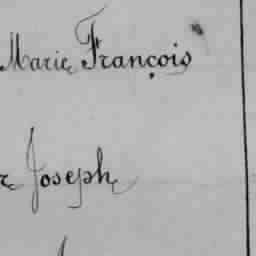 Marie François
Joseph